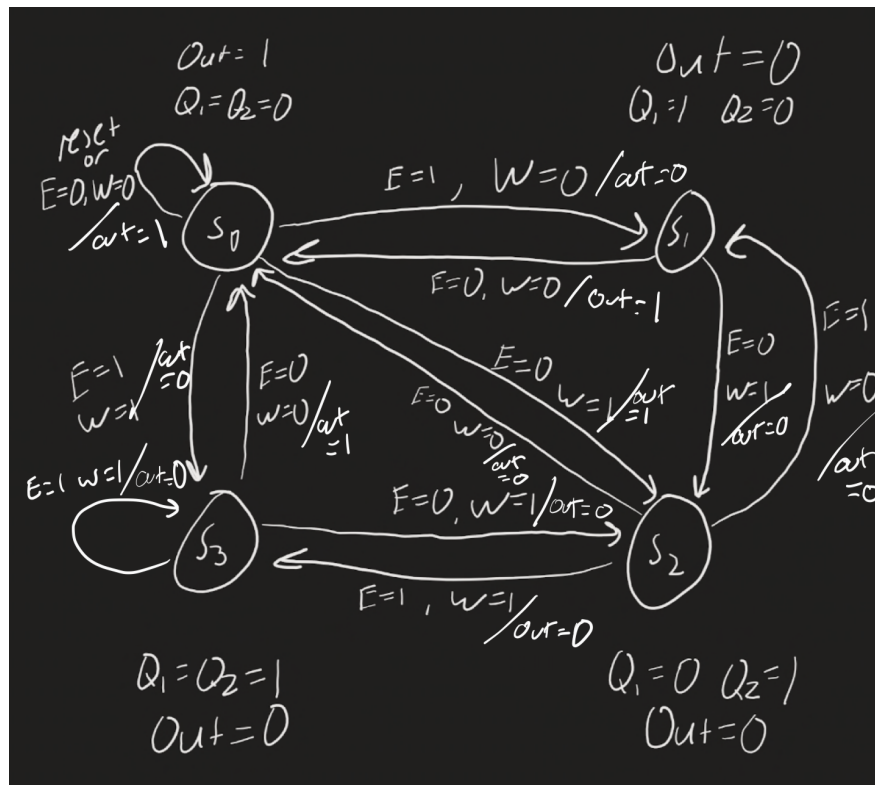 Out=1
Q₁=Q₂=0
Out=0
Q₁=1 Q₂=0
reset
or
E=0,W=0
/out=1
S₀
E=1, W=0/out=0
S₁
E=0, W=0/out=1
E=1
W=1/out=0
E=0
W=0/out=1
E=0
W=1/out=1
E=0
W=0/out=0
E=0
W=1
/out=0
E=1
W=0
/out=0
E=1 W=1/out=0
S₃
E=0, W=1/out=0
S₂
E=1, W=1/out=0
Q₁=Q₂=1
Out=0
Q₁=0 Q₂=1
Out=0